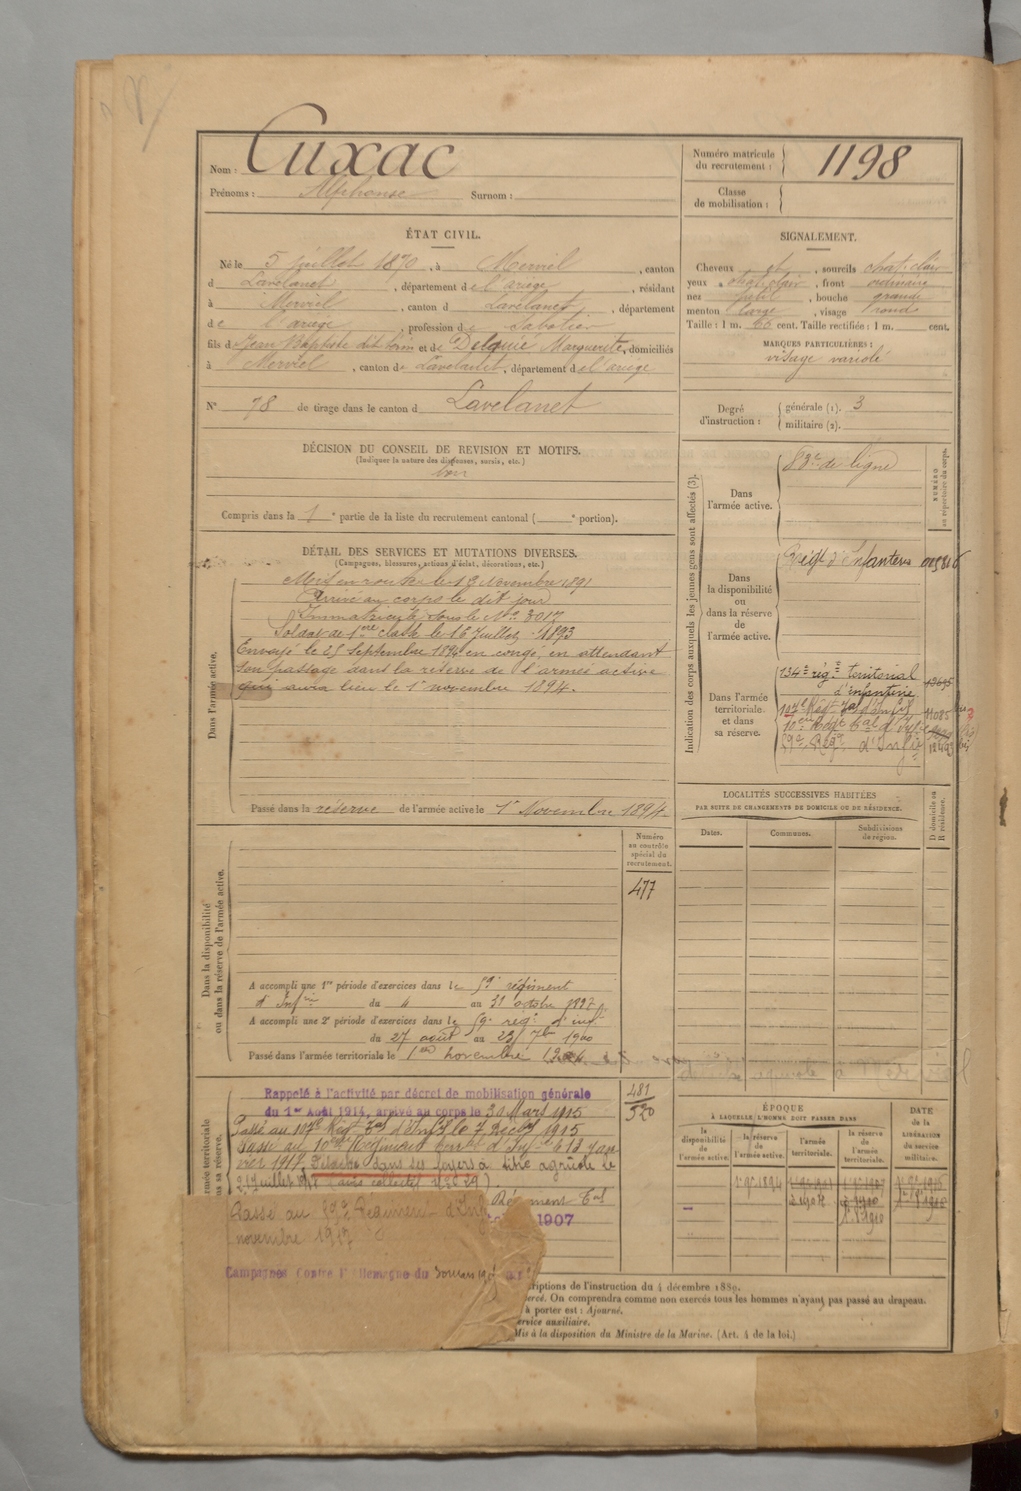 Nom : Cuxac
Prénoms : Alphonse Surnom :
Numéro matricule du recrutement : 1198
Classe de mobilisation :
ÉTAT CIVIL.
Né le 5 juillet 1870, à Merviel, canton
d Lavelanet, département de l'ariège, résidant
à Merviel, canton d Lavelanet, département
de l'ariège, profession de Sabotier
fils de Jean Baptiste dit et de Delquié Marguerite, domiciliés
à Merviel, canton de Lavelanet, département de l'ariège
N° 78 de tirage dans le canton d Lavelanet
SIGNALEMENT.
Cheveux et, sourcils chat. clair
yeux chat. clair, front ordinaire
nez petit, bouche grande
menton large, visage rond
Taille : 1 m. 66 cent. Taille rectifiée : 1 m. cent.
MARQUES PARTICULIÈRES :
visage variolé
Degré d'instruction : générale (1). 3
militaire (2).
DÉCISION DU CONSEIL DE REVISION ET MOTIFS.
(Indiquer la nature des dispenses, sursis, etc.)
bon
Compris dans la 1e partie de la liste du recrutement cantonal ( e portion).
DÉTAIL DES SERVICES ET MUTATIONS DIVERSES.
(Campagnes, blessures, actions d'éclat, décorations, etc.)
Dans l'armée active.
Mis en route le 13 Novembre 1891
Arrivé au corps le dit jour
Immatriculé sous le No 3017
Soldat de 1ère classe le 16 juillet 1893
Envoyé le 25 Septembre 1894 en congé, en attendant
son passage dans la réserve de l'armée active
qui aura lieu le 1er novembre 1894.
Passé dans la réserve de l'armée active le 1er Novembre 1894.
Indication des corps auxquels les jeunes gens sont affectés (3).
NUMÉRO au répertoire du corps.
Dans l'armée active.
83e de ligne
Dans la disponibilité ou dans la réserve de l'armée active.
Régt d'Infanterie
Dans l'armée territoriale et dans sa réserve.
134e rég. territorial
d'infanterie
107e Régt Tal d'Infie 11085
10e Régt Tal d'Infie
59e Rég. d'Infie
LOCALITÉS SUCCESSIVES HABITÉES
PAR SUITE DE CHANGEMENTS DE DOMICILE OU DE RÉSIDENCE.
Dates. Communes. Subdivisions de région. D domicile ou R résidence.
Numéro au contrôle spécial du recrutement.
477
Dans la disponibilité ou dans la réserve de l'armée active.
A accompli une 1re période d'exercices dans le 59e régiment
d'Infie du 4 au 31 octobre 1897
A accompli une 2e période d'exercices dans le 59e rég. d'inf.
du 27 août au 23 7bre 1900
Passé dans l'armée territoriale le 1er novembre 1904
Rappelé à l'activité par décret de mobilisation générale
du 1er Août 1914, arrivé au corps le 30 Mars 1915
Passé au 107e Régt Tal d'Infie le 7 Xbre 1915
Passé au 10e Régiment territ. d'Infie le 13 Janvier
1917. Détaché dans ses foyers à titre agricole le
Régiment Tal
1907
481
520
Passé au 59e Régiment d'Inf
novembre 1917
Campagnes Contre l'Allemagne du 30 mars 1915 au
ÉPOQUE
À LAQUELLE L'HOMME DOIT PASSER DANS
DATE de la LIBÉRATION du service militaire.
la disponibilité de l'armée active. la réserve de l'armée active. l'armée territoriale. la réserve de l'armée territoriale.
criptions de l'instruction du 4 décembre 1889.
ercé. On comprendra comme non exercés tous les hommes n'ayant pas passé au drapeau.
à porter est : Ajourné.
ervice auxiliaire.
Mis à la disposition du Ministre de la Marine. (Art. 4 de la loi.)